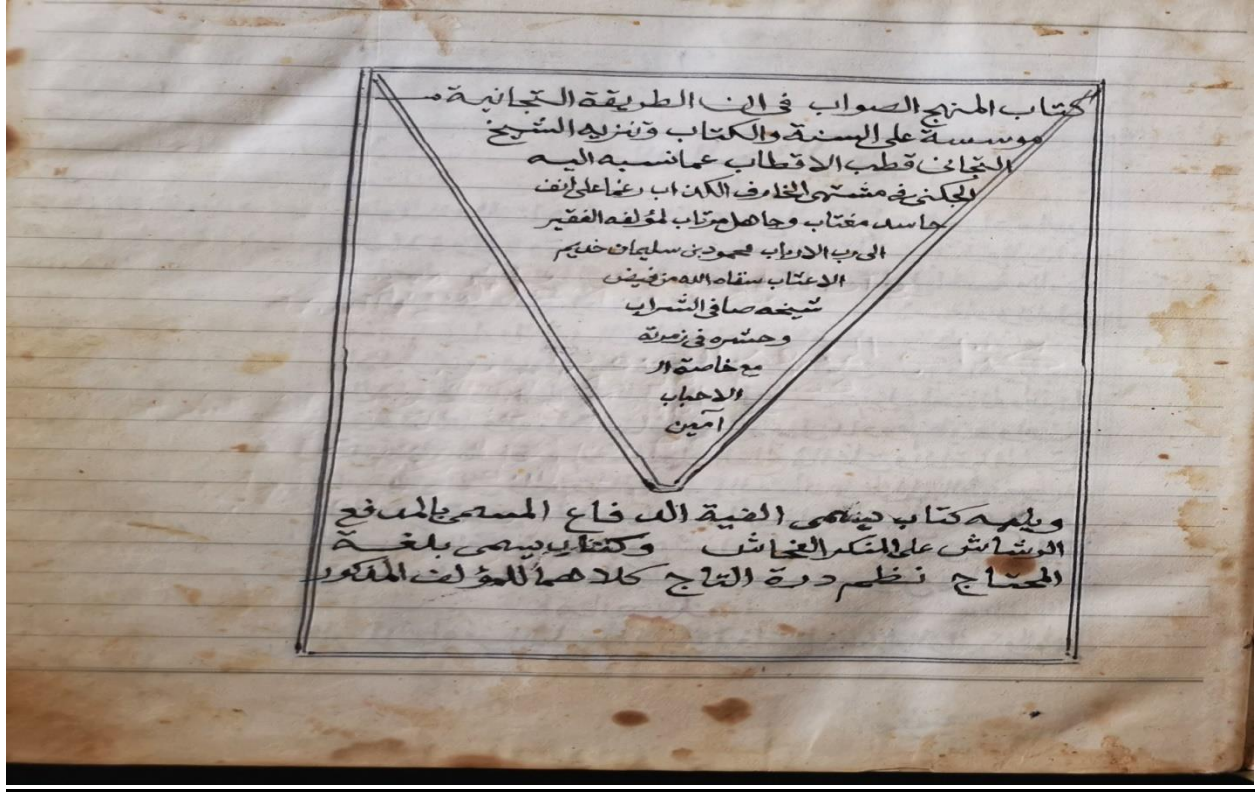 كتاب المنهج الصواب في ان الطريقة التجانية
موسسة على السنة والكتاب وتنزيه الشيخ
التجاني قطب الاقطاب عما نسبه اليه
الجكني في مشتهى الخارف الكذاب رغما على انف
حاسد مغتاب وجاهل مرتاب لمؤلفه الفقير
الى رب الارباب محمود بن سليمان خديم
الاعتاب سقاه الله من فيض
شيخه صافي الشراب
وحشره في زمرته
مع خاصة ال
الاحباب
آمين
ويليه كتاب يسمى الفية الدفاع المسمى بالمدفع
الرشاش على المنكر الفحاش وكتاب يسمى بلغة
المحتاج نظم درة التاج كلاهما للمؤلف المذكور